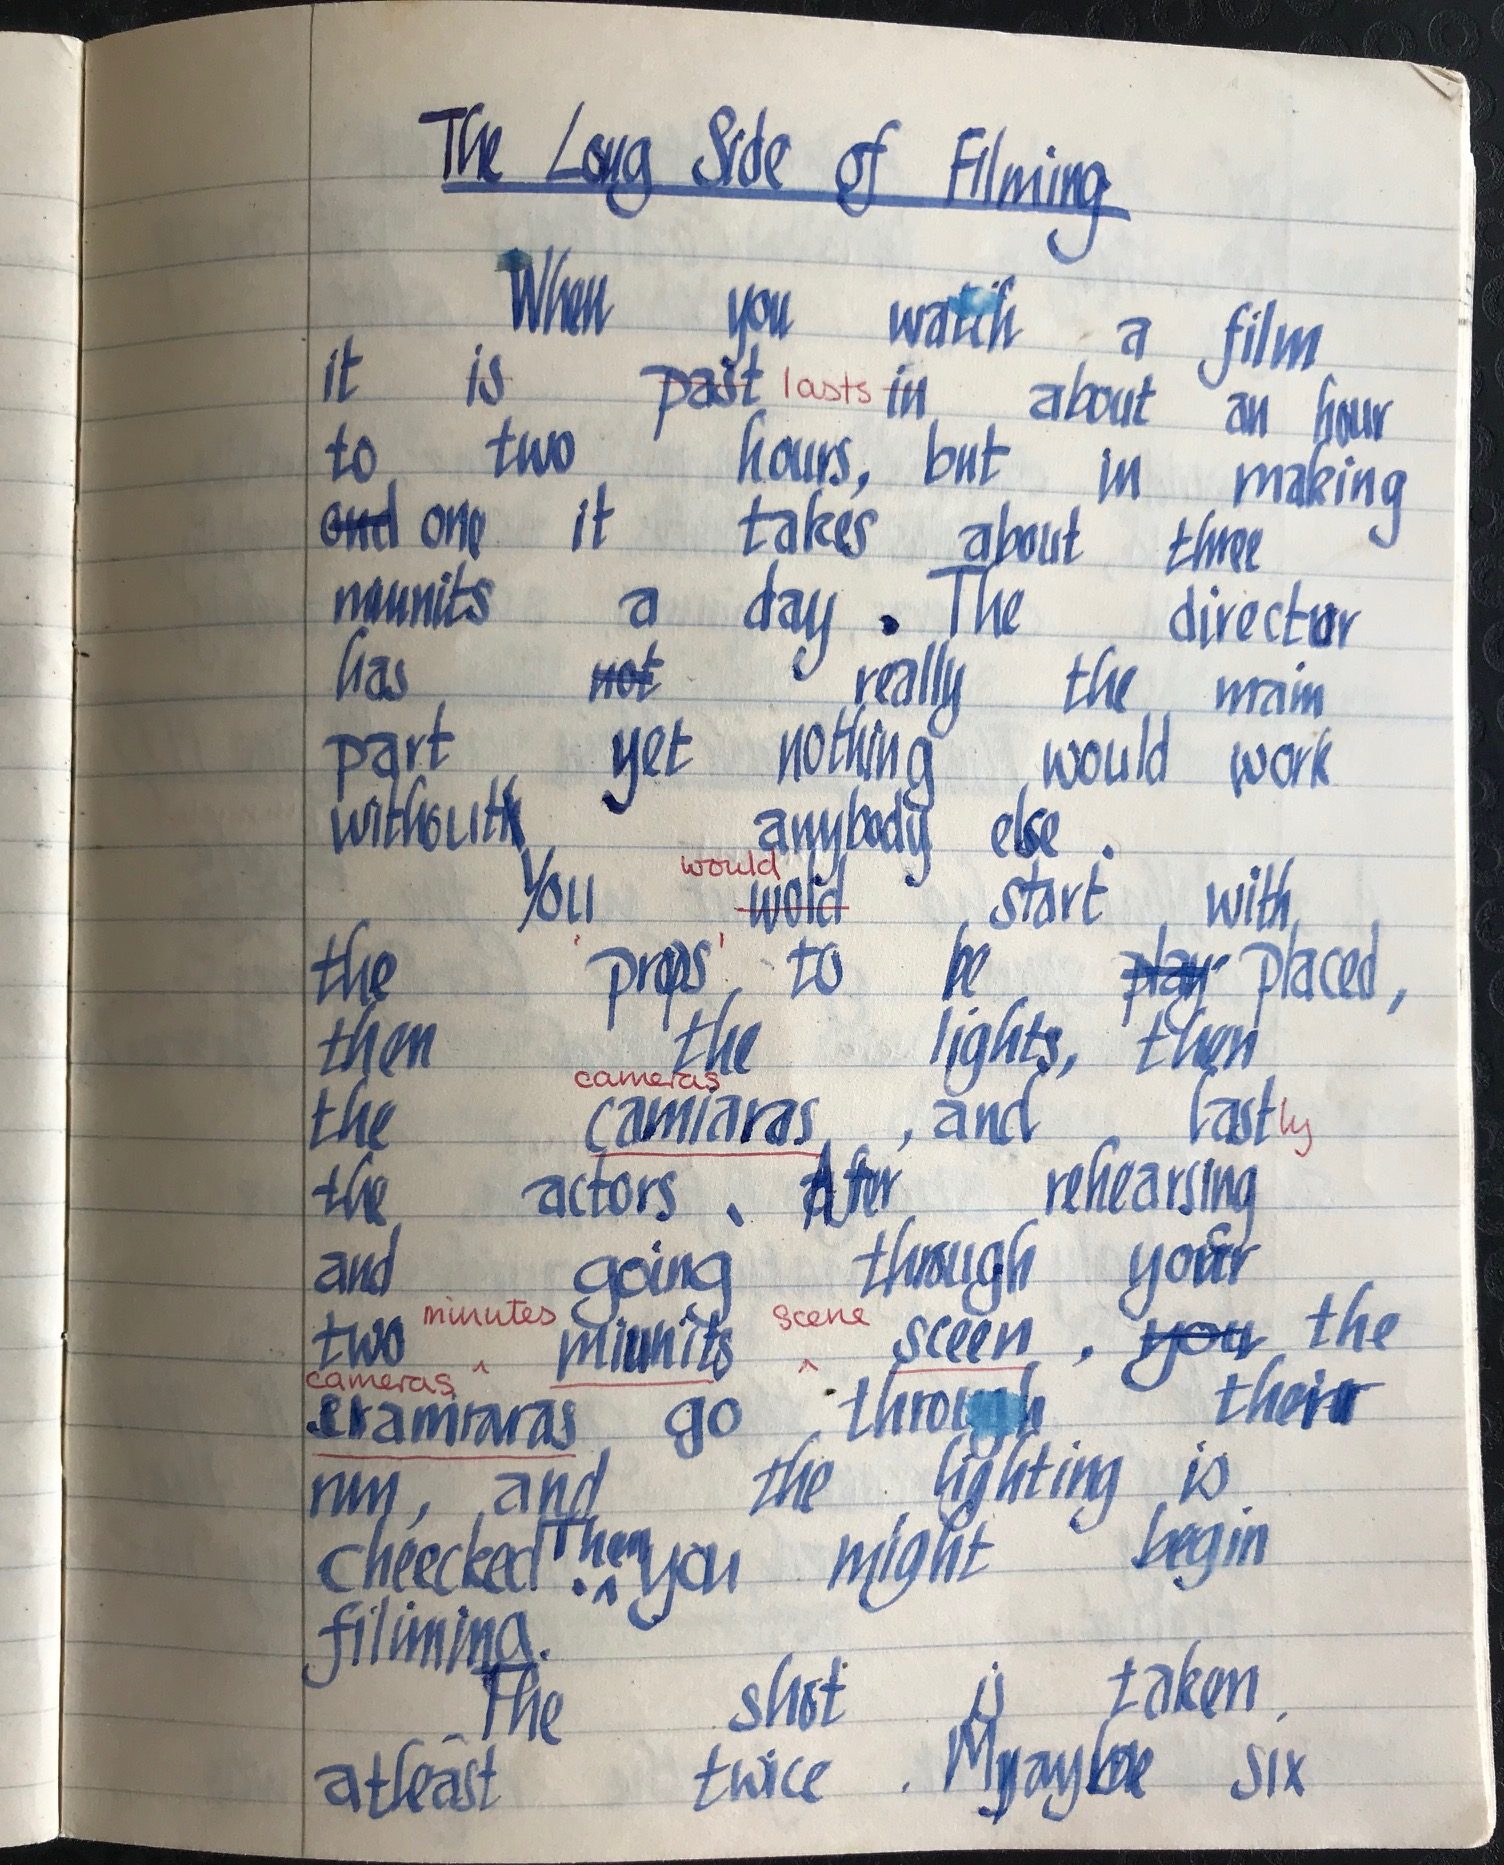 The Long Side of Filming
When you watch a film
it is past lasts in about an hour
to two hours, but in making
and one it takes about three
miunits a day. The director
has not really the main
part yet nothing would work
without anybody else.
would
You wold start with
the 'props' to be play placed,
then the lights, then
cameras
the camiaras, and lastly
the actors. After rehearsing
and going through your
minutes scene
two miunits sceen, you the
cameras
camiaras go through their
run, and the lighting is
Then
cheecked. ^ you might begin
filiming.
The shot is taken
atleast twice. Mayboe six